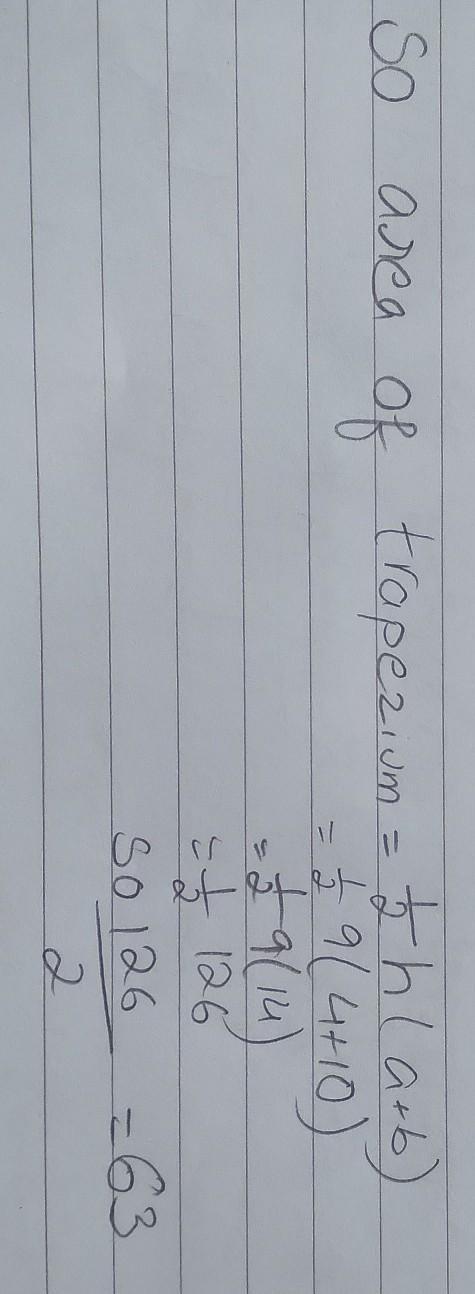 So area of trapezium = 1/2 h(a+b)
= 1/2 9(4+10)
= 1/2 9(14)
= 1/2 126
So 126/2 = 63